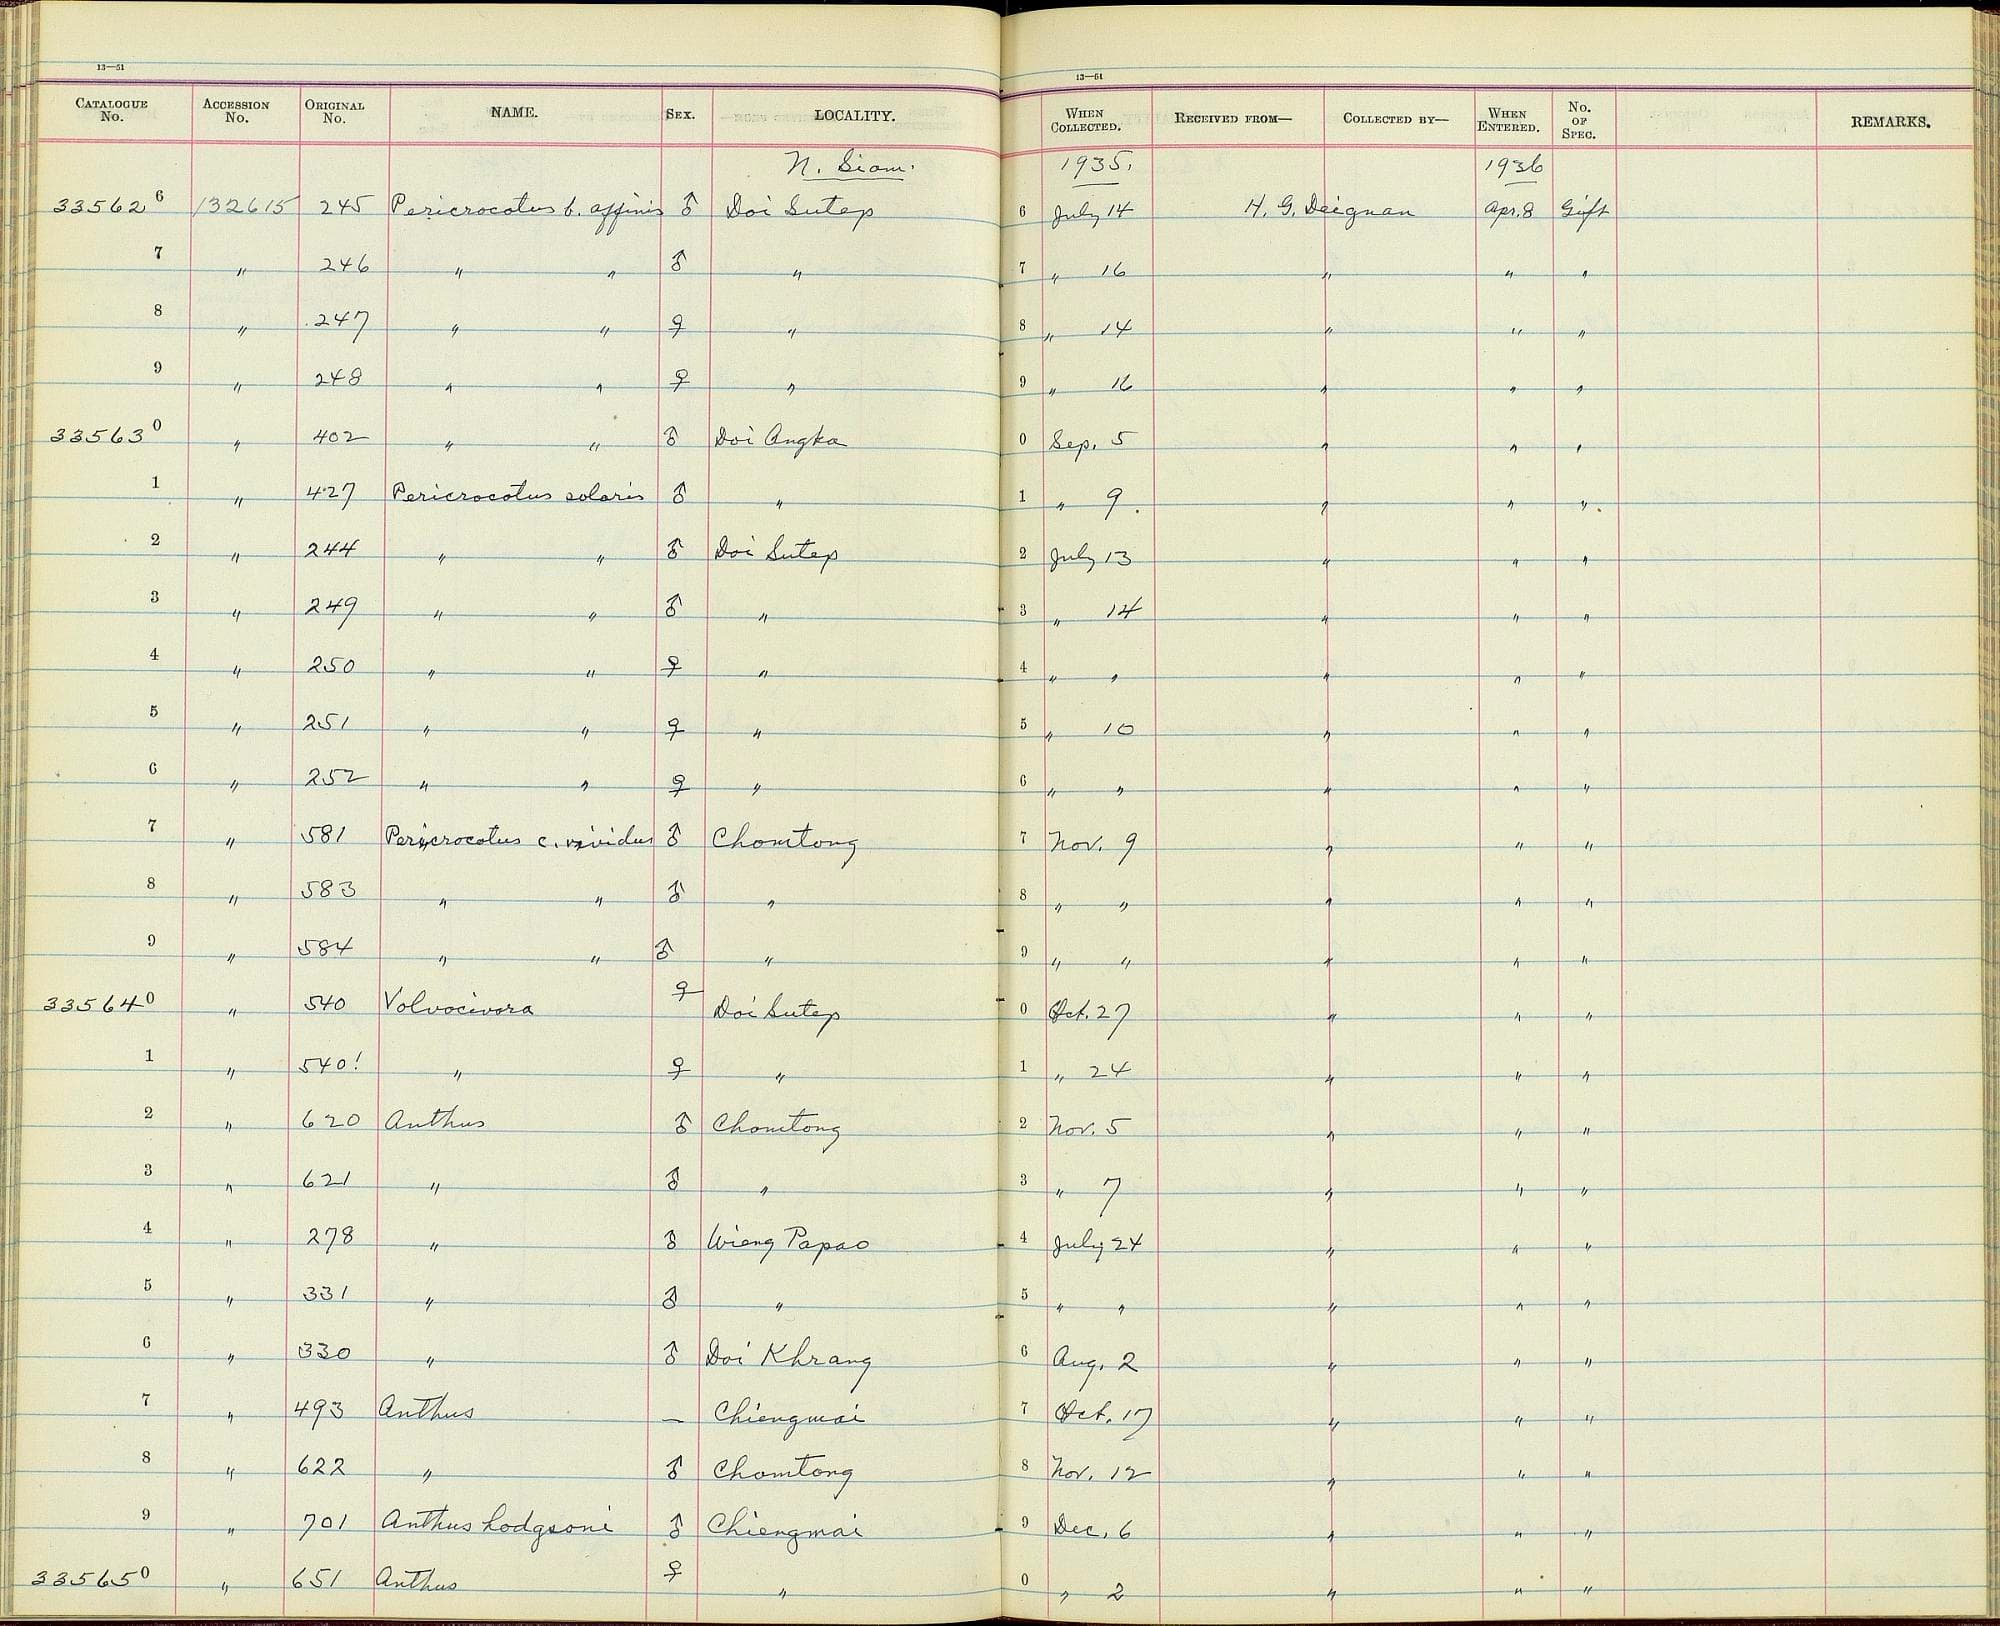 13—51 13—51
CATALOGUE No. ACCESSION No. ORIGINAL No. NAME. SEX. LOCALITY. WHEN COLLECTED. RECEIVED FROM— COLLECTED BY— WHEN ENTERED. No. OF SPEC. REMARKS.
N. Siam. 1935. 1936
335626 132615 245 Pericrocotus b. affinis ♂ Doi Sutep 6 July 14 H. G. Deignan Apr. 8 Gift
7 " 246 " " ♂ " 7 " 16 " " "
8 " 247 " " ♀ " 8 " 14 " " "
9 " 248 " " ♀ " 9 " 16 " " "
335630 " 402 " " ♂ Doi Angka 0 Sep. 5 " " "
1 " 427 Pericrocotus solaris ♂ " 1 " 9. " " "
2 " 244 " " ♂ Doi Sutep 2 July 13 " " "
3 " 249 " " ♂ " 3 " 14 " " "
4 " 250 " " ♀ " 4 " " " " "
5 " 251 " " ♀ " 5 " 10 " " "
6 " 252 " " ♀ " 6 " " " " "
7 " 581 Pericrocotus c. vividus ♂ Chomtong 7 Nov. 9 " " "
8 " 583 " " ♂ " 8 " " " " "
9 " 584 " " ♂ " 9 " " " " "
335640 " 540 Volvocivora ♀ Doi Sutep 0 Oct. 27 " " "
1 " 540! " ♀ " 1 " 24 " " "
2 " 620 Anthus ♂ Chomtong 2 Nov. 5 " " "
3 " 621 " ♂ " 3 " 7 " " "
4 " 278 " ♂ Wieng Papao 4 July 24 " " "
5 " 331 " ♂ " 5 " " " " "
6 " 330 " ♂ Doi Khrang 6 Aug. 2 " " "
7 " 493 Anthus — Chiengmai 7 Oct. 17 " " "
8 " 622 " ♂ Chomtong 8 Nov. 12 " " "
9 " 701 Anthus hodgsoni ♂ Chiengmai 9 Dec. 6 " " "
335650 " 651 Anthus ♀ " 0 " 2 " " "